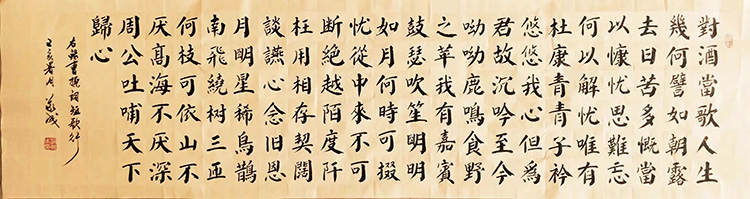 對酒當歌人生
幾何譬如朝露
去日苦多慨當
以慷忧思難忘
何以解忧唯有
杜康青青子衿
悠悠我心但爲
君故沉吟至今
呦呦鹿鳴食野
之苹我有嘉賓
鼓瑟吹笙明明
如月何時可掇
忧從中來不可
断絶越陌度阡
枉用相存契闊
談讌心念旧恩
月明星稀烏鵲
南飛繞树三匝
何枝可依山不
厌髙海不厌深
周公吐哺天下
歸心
右錄曹操詞短歌行